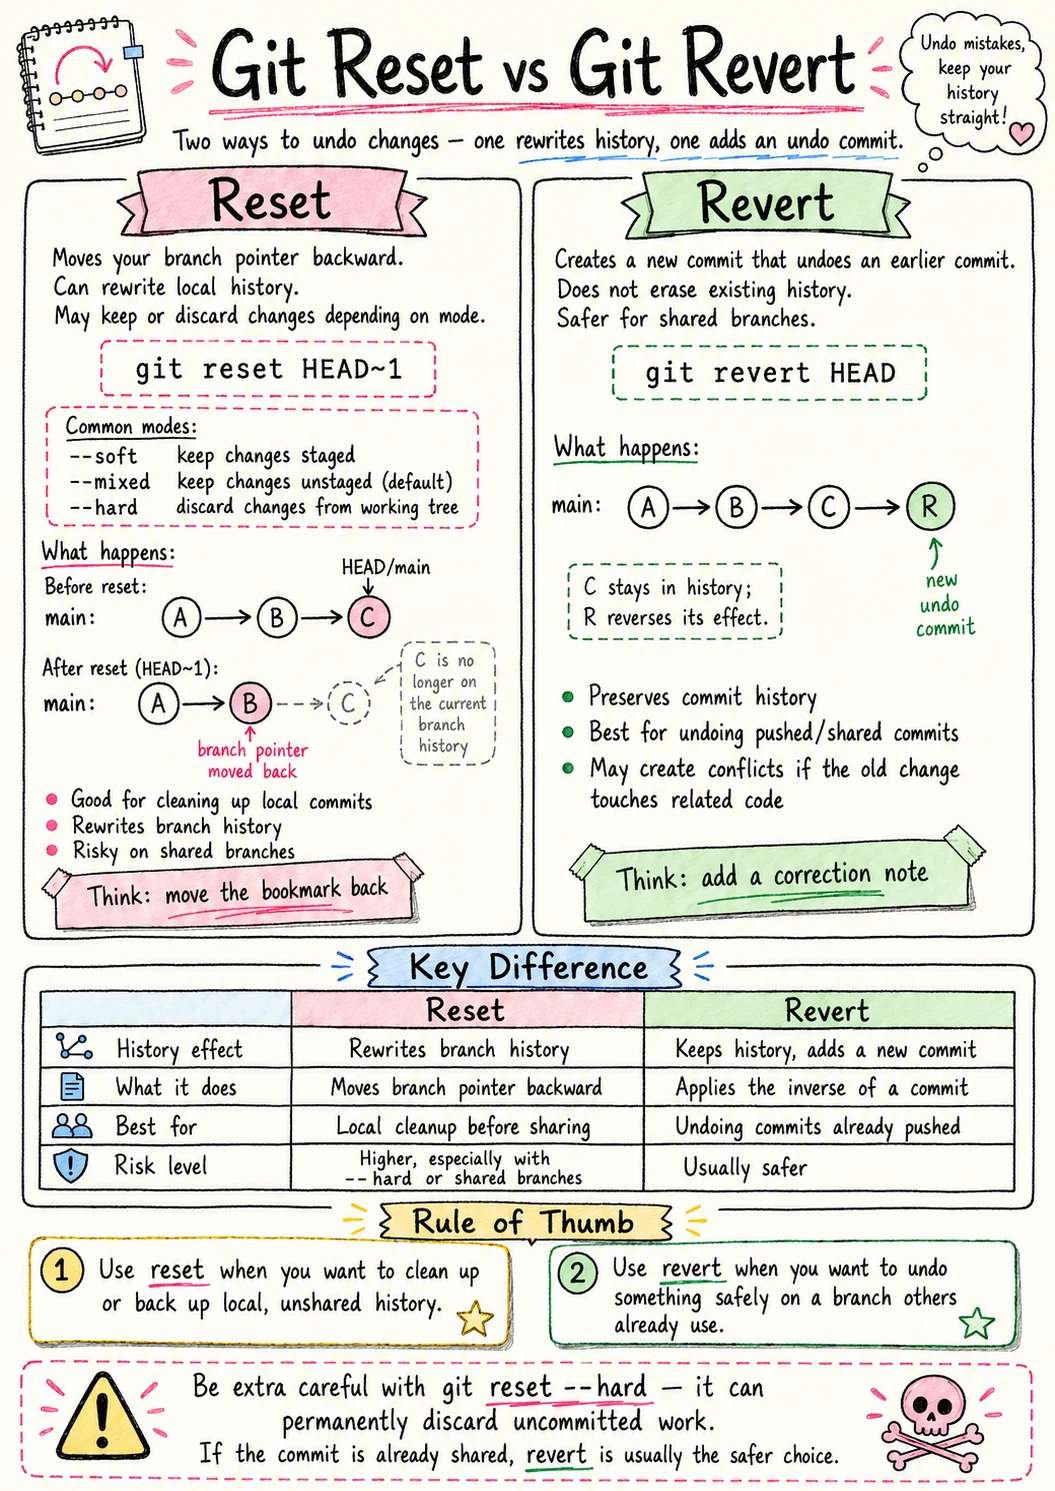 Git Reset vs Git Revert
Undo mistakes,
keep your
history
straight!
Two ways to undo changes — one rewrites history, one adds an undo commit.
Reset
Moves your branch pointer backward.
Can rewrite local history.
May keep or discard changes depending on mode.
git reset HEAD~1
Common modes:
--soft keep changes staged
--mixed keep changes unstaged (default)
--hard discard changes from working tree
What happens:
Before reset:
HEAD/main
main: A B C
After reset (HEAD~1):
main: A B C
C is no
longer on
the current
branch
history
branch pointer
moved back
Good for cleaning up local commits
Rewrites branch history
Risky on shared branches
Think: move the bookmark back
Revert
Creates a new commit that undoes an earlier commit.
Does not erase existing history.
Safer for shared branches.
git revert HEAD
What happens:
main: A B C R
new
undo
commit
C stays in history;
R reverses its effect.
Preserves commit history
Best for undoing pushed/shared commits
May create conflicts if the old change
touches related code
Think: add a correction note
Key Difference
Reset Revert
History effect Rewrites branch history Keeps history, adds a new commit
What it does Moves branch pointer backward Applies the inverse of a commit
Best for Local cleanup before sharing Undoing commits already pushed
Risk level Higher, especially with
--hard or shared branches Usually safer
Rule of Thumb
1 Use reset when you want to clean up
or back up local, unshared history.
2 Use revert when you want to undo
something safely on a branch others
already use.
Be extra careful with git reset --hard — it can
permanently discard uncommitted work.
If the commit is already shared, revert is usually the safer choice.